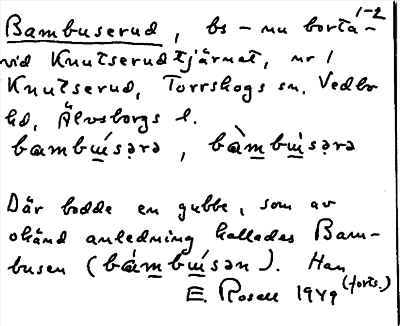 1-2
Bambuserud, bs - nu borta -
vid Knutserudtjärnet, nr 1
Knutserud, Torrskogs sn. Vedbo
hd, Älvsborgs l.
bambɯ́sərə, bàmbɯ̀sərə
Där bodde en gubbe, som av
okänd anledning kallades Bam-
busen (bàmbɯ́sən). Han
E. Rosell 1949 (forts.)